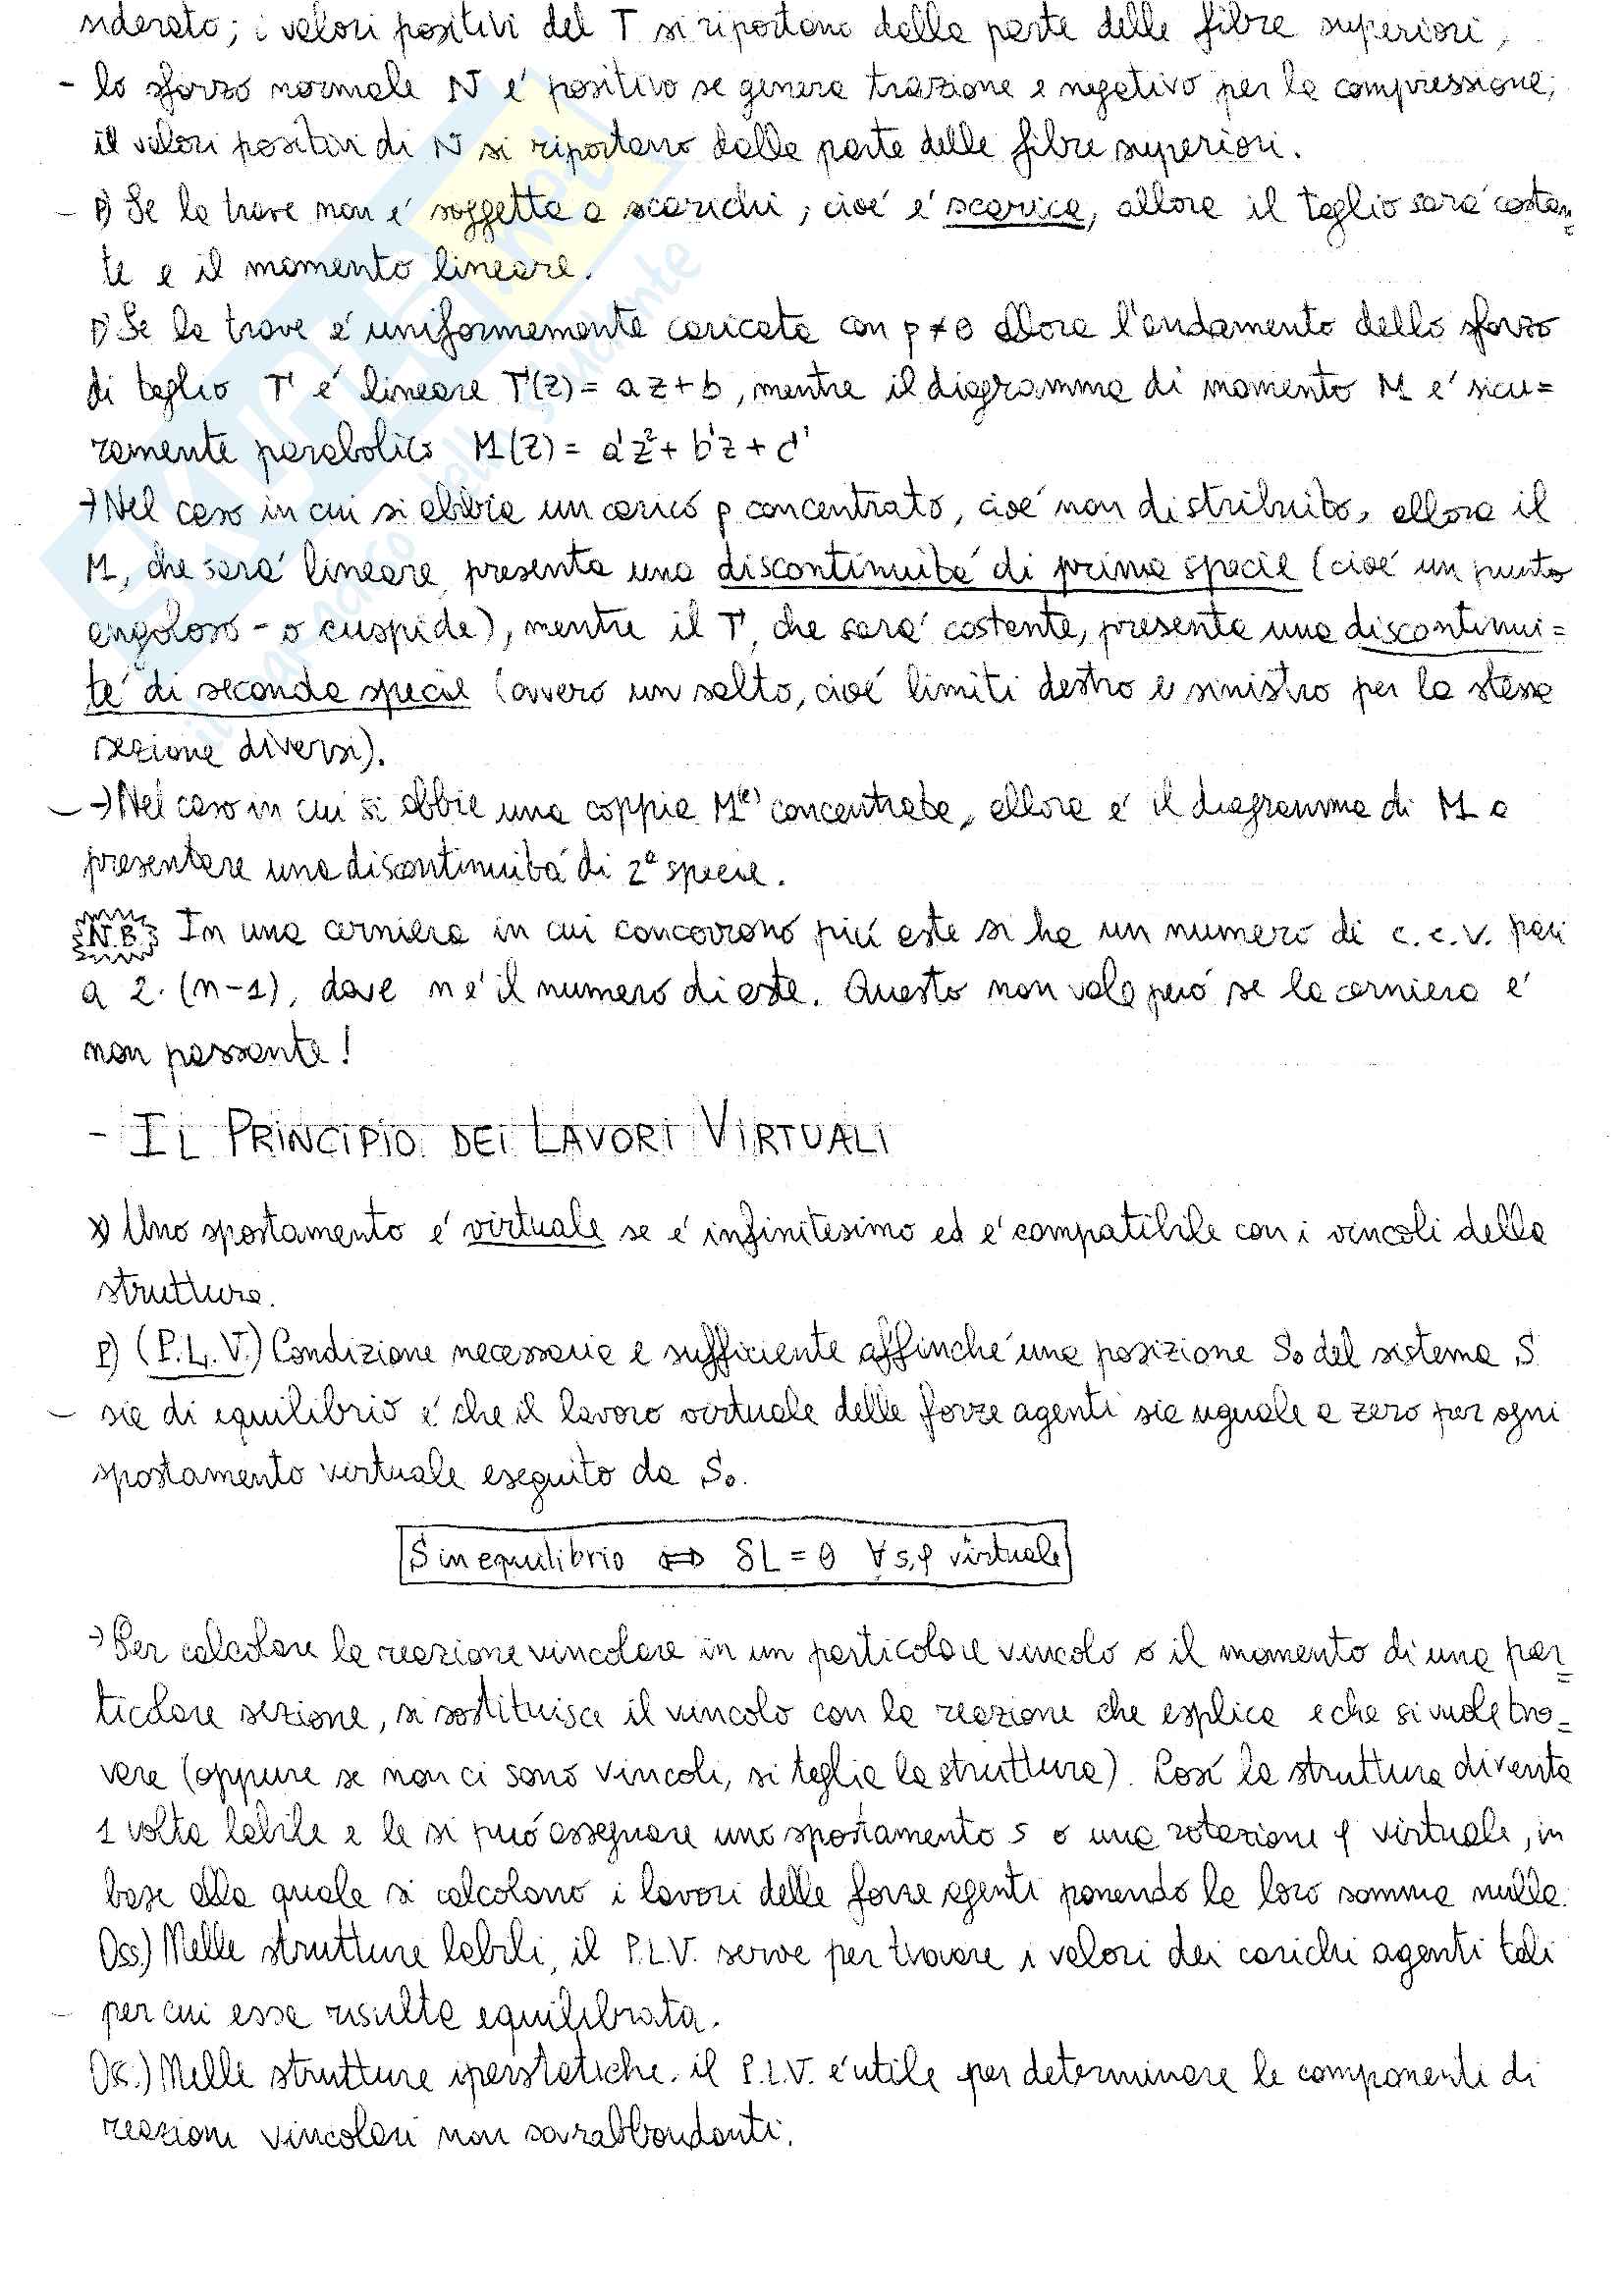 siderato; i valori positivi del T si riportano dalla parte delle fibre superiori;
- lo sforzo normale N é positivo se genera trazione e negativo per la compressione;
il valori positivi di N si riportano dalla parte delle fibre superiori.
- P) Se la trave non é soggetta a scarichi, cioé é scarica, allora il taglio sará costan=
te e il momento lineare.
P) Se la trave é uniformemente caricata con p ≠ 0 allora l'andamento dello sforzo
di taglio T é lineare T(z) = az + b, mentre il diagramma di momento M é sicu=
ramente parabolico M(z) = a'z² + b'z + c'
→ Nel caso in cui si abbia un carico p concentrato, cioé non distribuito, allora il
M, che sará lineare, presenta una discontinuitá di prima specie (cioé un punto
angoloso - o cuspide), mentre il T, che sará costante, presenta una discontinui=
tá di seconda specie (ovvero un salto, cioé limiti destro e sinistro per la stessa
sezione diversi).
→ Nel caso in cui si abbia una coppia M⁽ᵉ⁾ concentrata, allora é il diagramma di M a
presentare una discontinuitá di 2ª specie.
N.B. In una cerniera in cui concorrono piú aste si ha un numero di c.c.v. pari
a 2·(n-1), dove n é il numero di aste. Questo non vale peró se la cerniera é
non passante!
- IL PRINCIPIO DEI LAVORI VIRTUALI
Uno spostamento é virtuale se é infinitesimo ed é compatibile con i vincoli della
struttura.
P) (P.L.V.) Condizione necessaria e sufficiente affinché una posizione S₀ del sistema S
sia di equilibrio é che il lavoro virtuale delle forze agenti sia uguale a zero per ogni
spostamento virtuale eseguito da S₀.
S in equilibrio ⇔ δL = 0 ∀ s,φ virtuale
→ Per calcolare la reazione vincolare in un particolare vincolo o il momento di una par=
ticolare sezione, si sostituisce il vincolo con la reazione che esplica e che si vuole tro=
vare (oppure se non ci sono vincoli, si taglia la struttura). Cosí la struttura diventa
1 volta labile e le si puó assegnare uno spostamento s o una rotazione φ virtuale, in
base alla quale si calcolano i lavori delle forze agenti ponendo la loro somma nulla.
Oss.) Nelle strutture labili, il P.L.V. serve per trovare i valori dei carichi agenti tali
per cui essa risulta equilibrata.
Oss.) Nelle strutture iperstatiche, il P.L.V. é utile per determinare le componenti di
reazioni vincolari non sovrabbondanti.